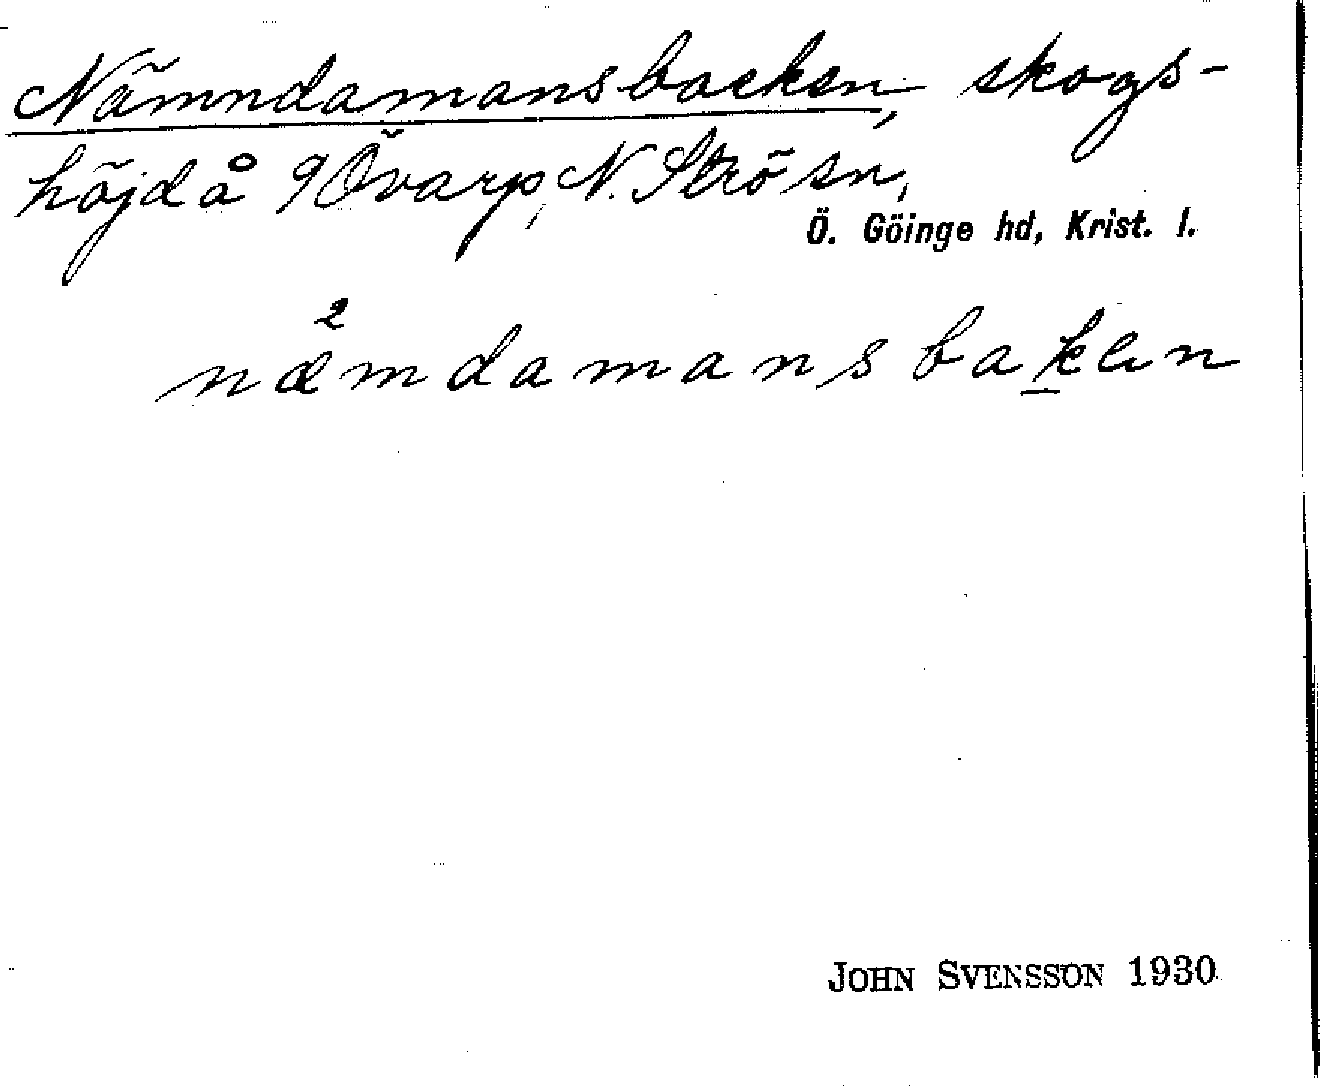 Nämndamansbacken, skogs-
höjd å 9 Övarp, N. Strö sn,
Ö. Göinge hd, Krist. l.
2
næmdamansbaken
JOHN SVENSSON 1930